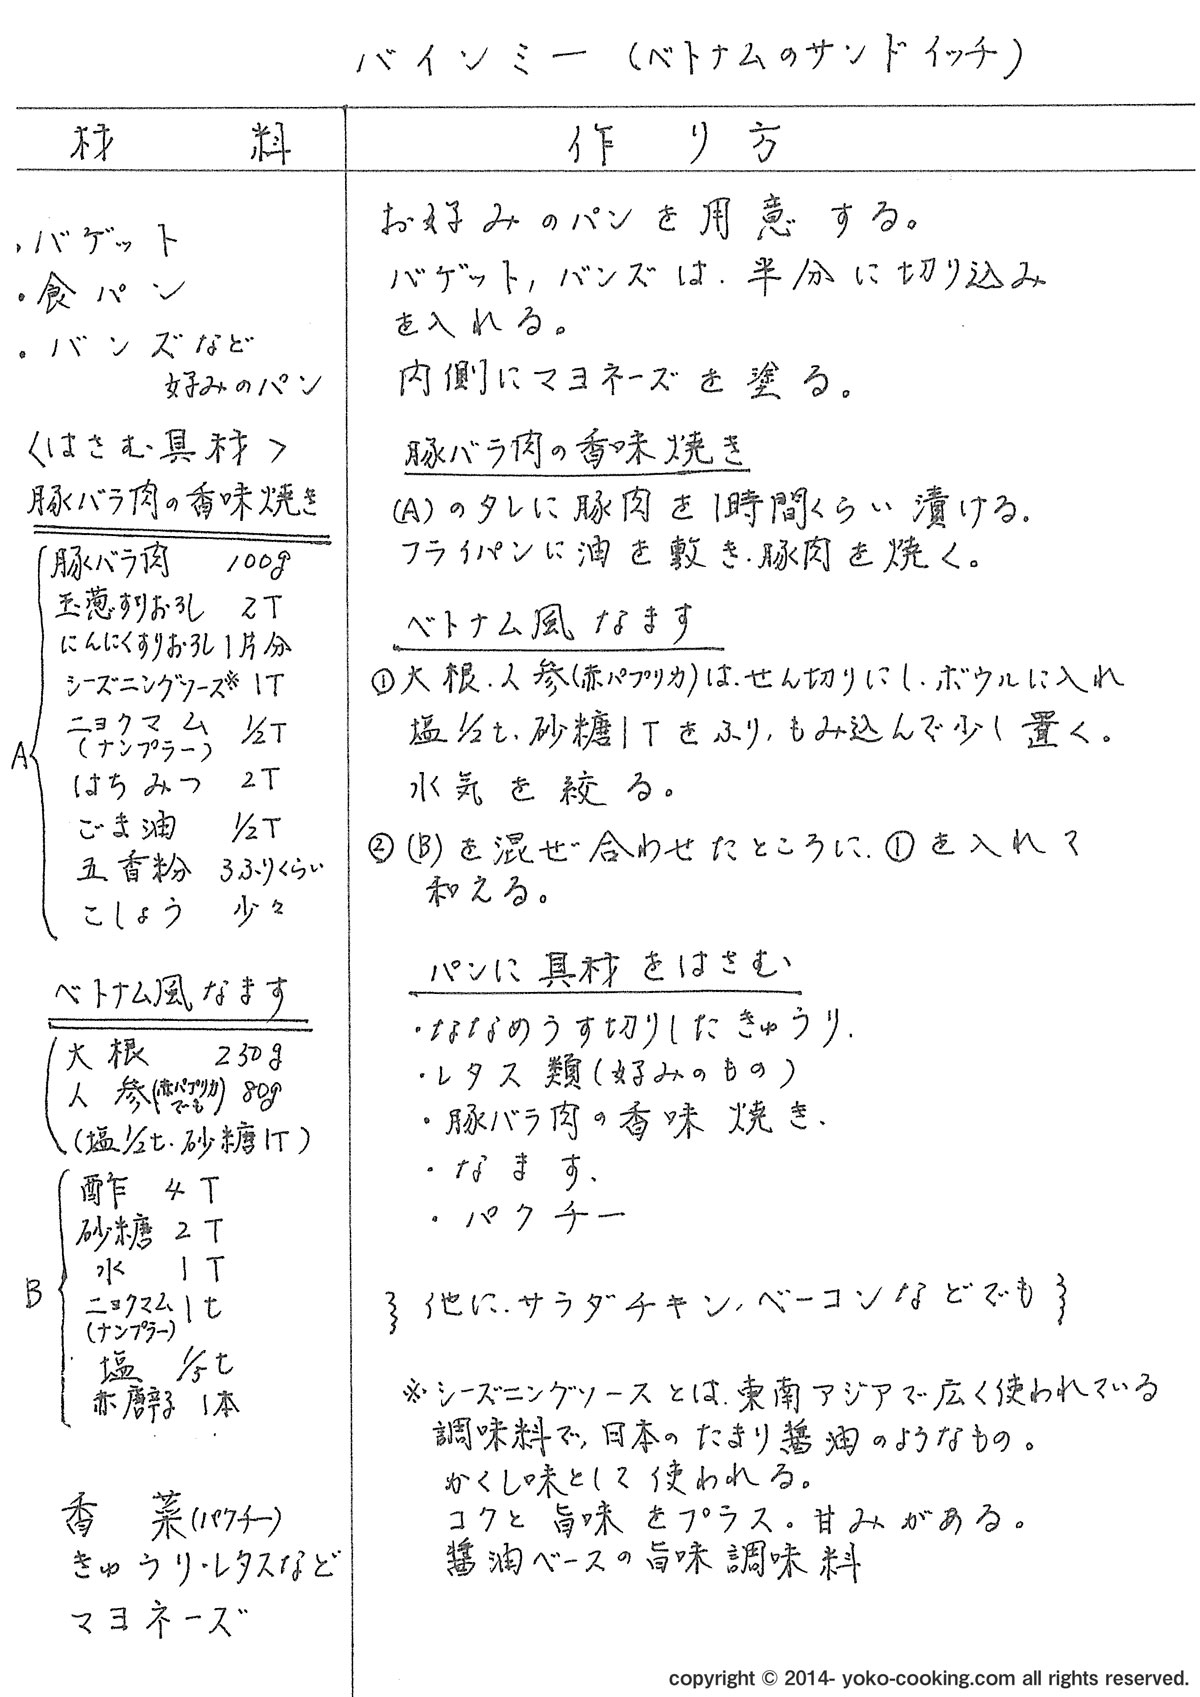 バインミー (ベトナムのサンドイッチ)
材料
作り方
・バゲット
・食パン
・バンズなど
好みのパン
〈はさむ具材〉
豚バラ肉の香味焼き
豚バラ肉 100g
玉葱すりおろし 2T
にんにくすりおろし 1片分
シーズニングソース※ 1T
ニョクマム 1/2T
(ナンプラー)
A
はちみつ 2T
ごま油 1/2T
五香粉 3ふりくらい
こしょう 少々
ベトナム風なます
大根 230g
人参(赤パプリカでも) 80g
(塩1/2t.砂糖1T)
酢 4T
砂糖 2T
水 1T
B
ニョクマム 1t
(ナンプラー)
塩 1/5t
赤唐辛子 1本
香菜(パクチー)
きゅうり・レタスなど
マヨネーズ
お好みのパンを用意する。
バゲット,バンズは.半分に切り込み
を入れる。
内側にマヨネーズを塗る。
豚バラ肉の香味焼き
(A)のタレに豚肉を1時間くらい漬ける.
フライパンに油を敷き.豚肉を焼く。
ベトナム風なます
①大根.人参(赤パプリカ)は.せん切りにし.ボウルに入れ
塩1/2t.砂糖1Tをふり,もみ込んで少し置く。
水気を絞る。
②(B)を混ぜ合わせたところに.①を入れて
和える。
パンに具材をはさむ
・ななめうす切りしたきゅうり.
・レタス類(好みのもの)
・豚バラ肉の香味焼き.
・なます.
・パクチー
}他に.サラダチキン,ベーコンなどでも}
※シーズニングソースとは.東南アジアで広く使われている
調味料で,日本のたまり醤油のようなもの。
かくし味として使われる。
コクと旨味をプラス。甘みがある。
醤油ベースの旨味調味料
copyright © 2014- yoko-cooking.com all rights reserved.